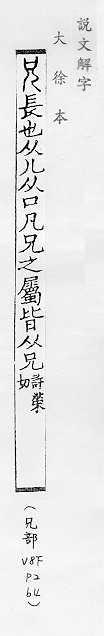 說文解字
大徐本
兄長也从儿从口凡兄之屬皆从兄許榮切
(兄部 V8F P2 b4)